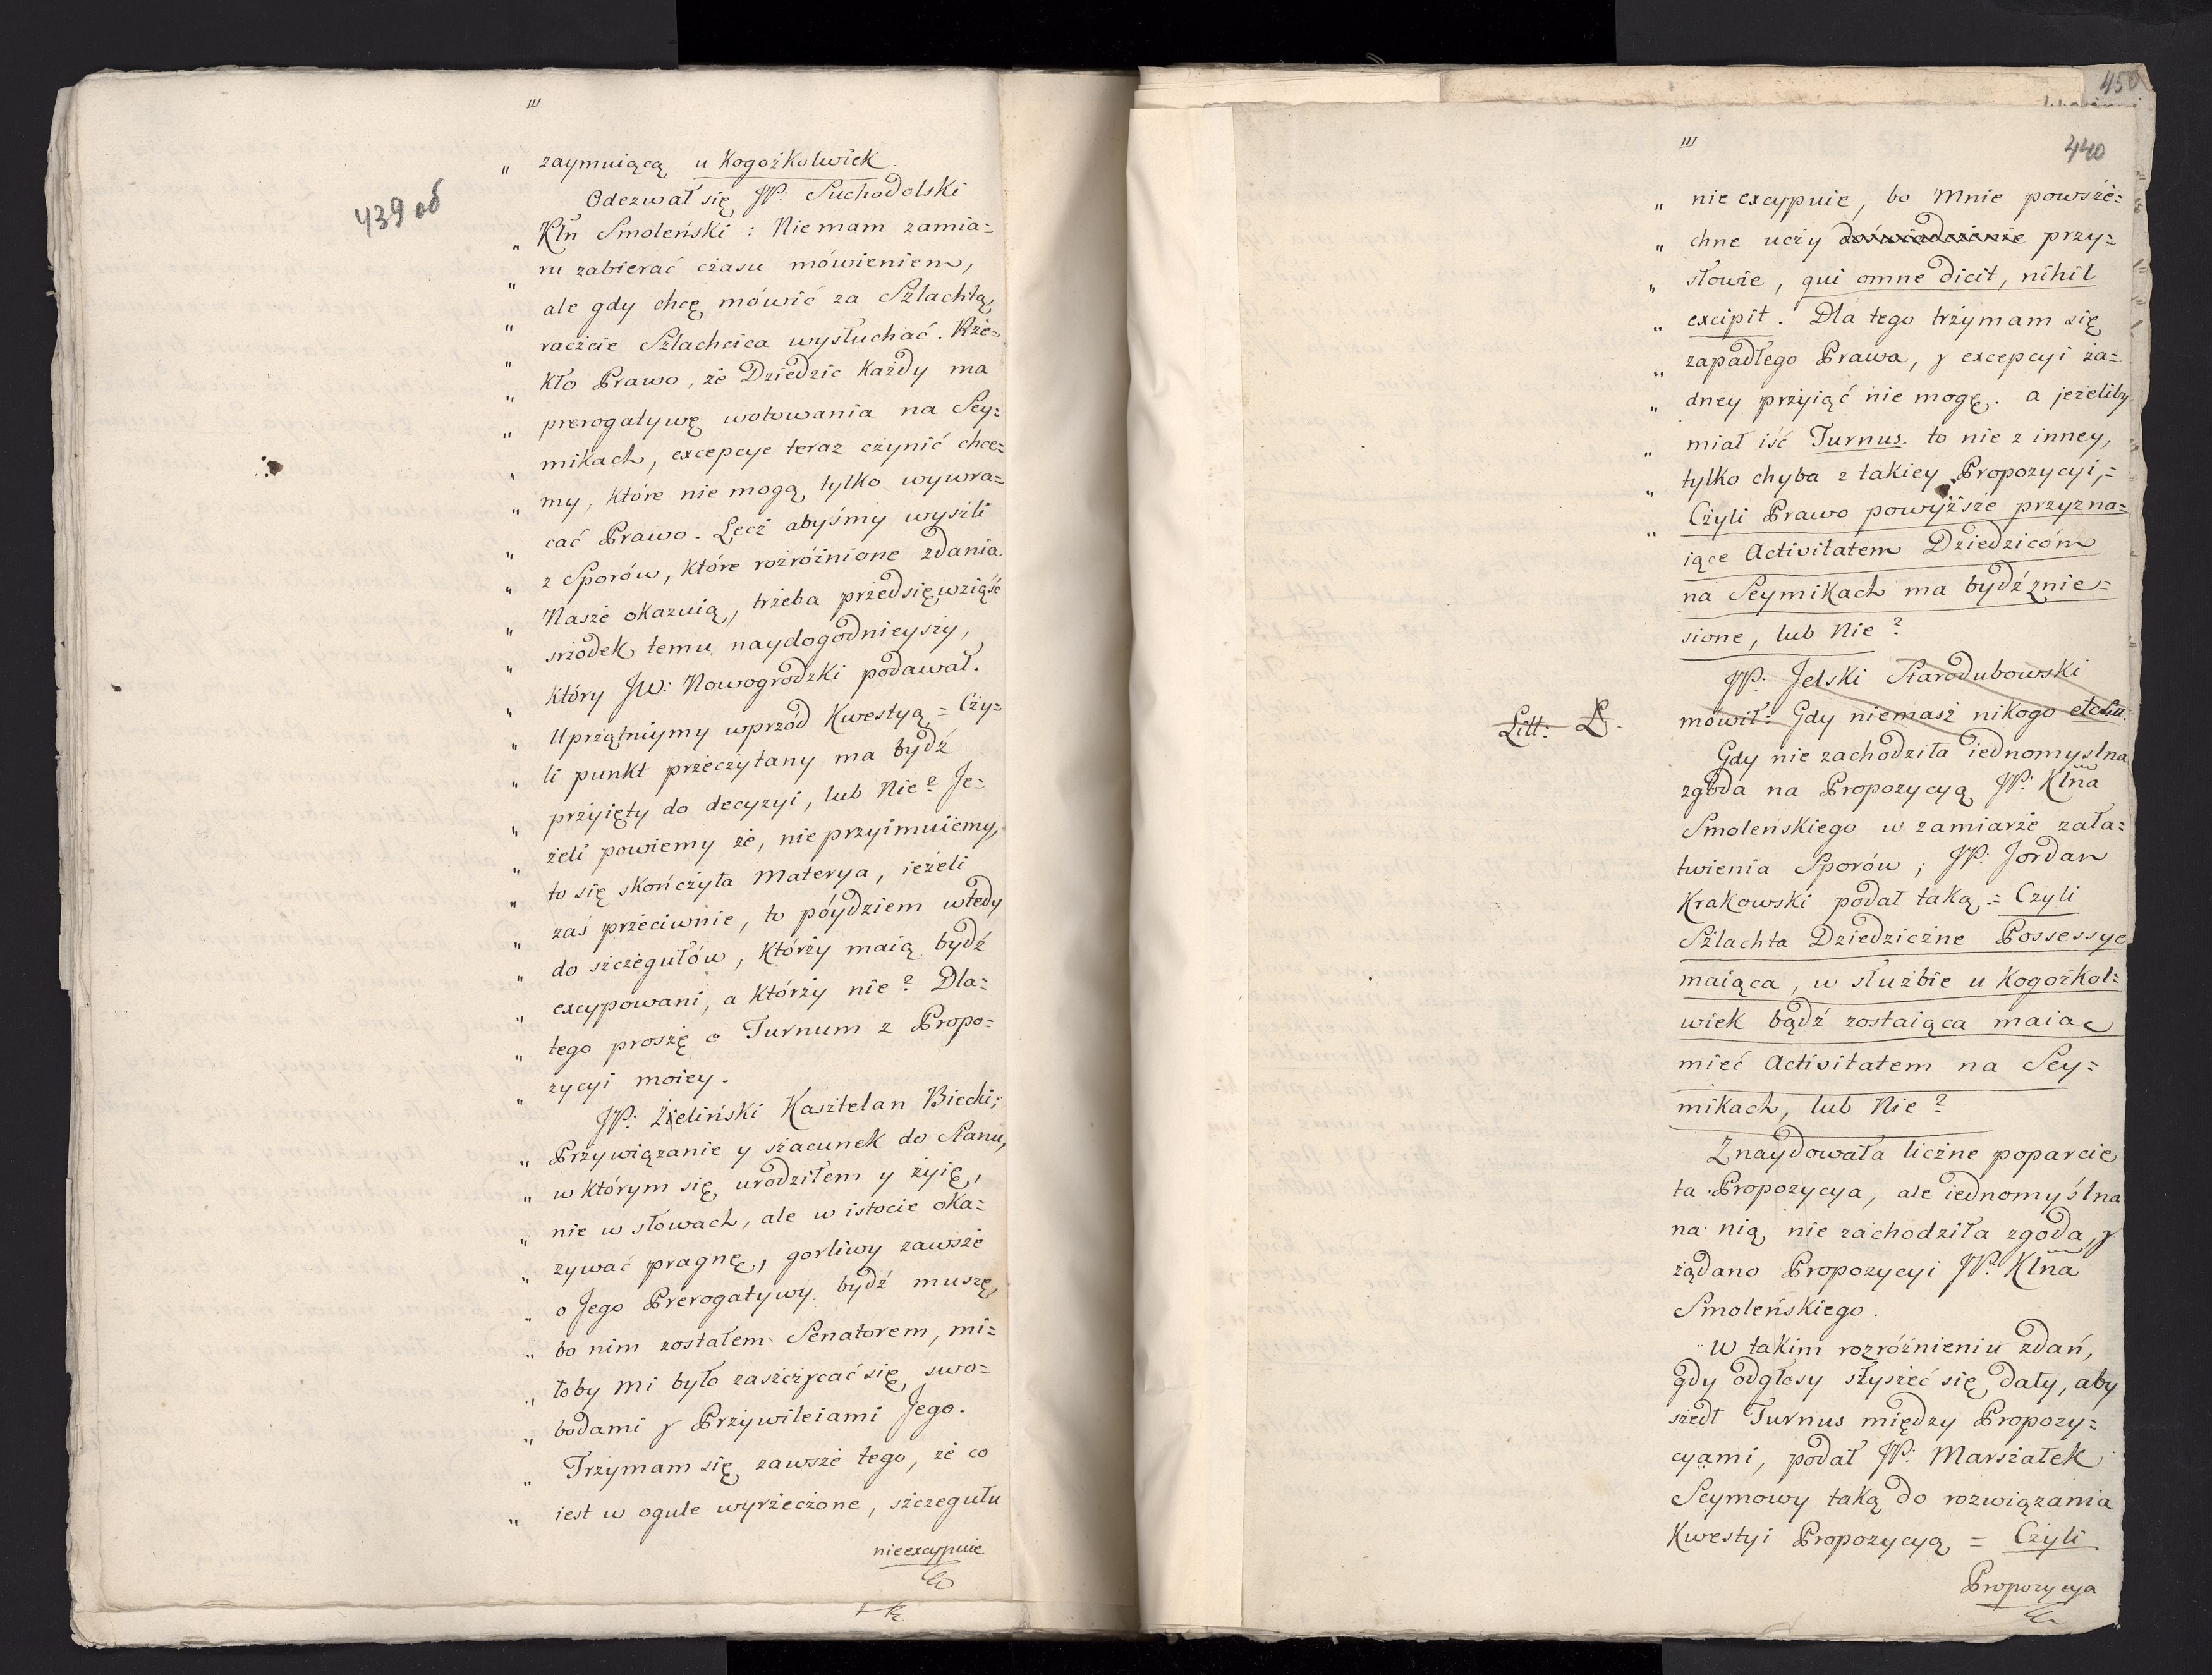 439 об
„ zaymuiącą u Kogożkolwiek.
Odezwał się JP: Suchodolski
„ Kłn Smoleński: Nie mam zamia=
„ ru zabierać czasu mówieniem,
„ ale gdy chcę mówić za Szlachtą,
„ raczcie Szlachcica wysłuchać. Rze=
„ kło Prawo, że Dziedzic Każdy ma
„ prerogatywę wotowania na Sey=
„ mikach, excepcye teraz czynić chce=
„ my, które nie mogą, tylko wywra=
„ cać Prawo. Lecz abyśmy wyszli
„ z Sporów, które rozróżnione zdania
„ Nasze okazuią, trzeba przedsięwziąść
„ srzodek temu naydogodnieyszy,
„ który JW: Nowogrodzki podawał.
„ Uprzątniymy wprzód Kwestyą = Czy=
„ li punkt przeczytany ma bydź
„ przyięty do decyzyi, lub Nie? Je=
„ żeli powiemy że, nie przyimuiemy,
„ to się skończyła Materya, ieżeli
„ zaś przeciwnie, to póydziem wtedy
„ do szczegułów, Którzy maią bydź
„ excypowani, a Którzy nie? Dla=
„ tego proszę o Turnum z Propo=
„ zycyi moiey.
JP: Żieliński Kasztelan Biecki;
„ Przywiązanie y szacunek do Stanu,
„ w którym się urodziłem y żyię,
„ nie w słowach, ale w istocie oka=
„ zywać pragnę, gorliwy zawsze
„ o Jego Prerogatywy bydź muszę,
„ bo nim zostałem Senatorem, mi=
„ łoby mi było zaszczycać się swo=
„ bodami y Przywileiami Jego.
„ Trzymam się zawsze tego, że co
„ iest w ogule wyrzeczone, szczegułu
nieexcypuie
450
440
„ nie excypuie, bo Mnie powsze=
„ chne uczy doświadczenie przy=
„ słowie, qui omne dicit, nihil
„ excipit. Dla tego trzymam się
„ zapadłego Prawa, y excepcyi ża=
„ dney przyiąć nie mogę. a jeżeliby
„ miał iść Turnus to nie z inney,
„ tylko chyba z takiey Propozycyi,=
„ Czyli Prawo powyższe przyzna=
iące Activitatem Dziedzicóm
na Seymikach ma bydź znie=
sione, lub Nie?
JP: Jelski Starodubowski
Litt: A. mówił: Gdy niemasz nikogo etc
Gdy nie zachodziła iednomyslna
zgoda na Propozycyą JP: Kłna
Smoleńskiego w zamiarze zała=
twienia Sporów, JP: Jordan
Krakowski podał taką = Czyli
Szlachta Dziedziczne Possessye
maiąca, w służbie u Kogożkol=
wiek bądź zostaiąca maią
mieć Activitatem na Sey=
mikach, lub Nie?
Znaydowała liczne poparcie
ta Propozycya, ale iednomyślna
na nią nie zachodziła zgoda, y
żądano Propozycyi JP: Kłna
Smoleńskiego.
W takim rozróżnieniu zdań,
gdy odgłosy słyszeć się dały, aby
szedł Turnus między Propozy=
cyami, podał JP: Marszałek
Seymowy taką do rozwiązania
Kwestyi Propozycyą = Czyli
Propozycya